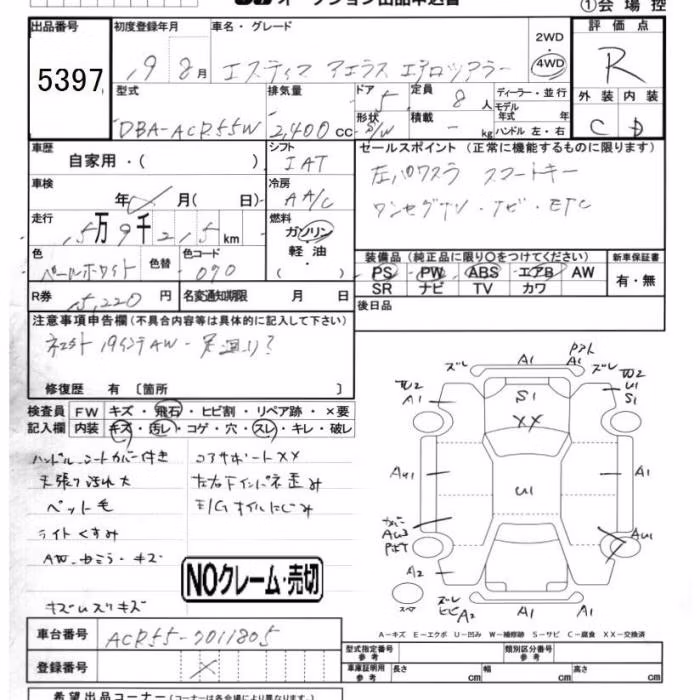 オークション出品申込書
①会場控
出品番号
5397
初度登録年月
19 8月
車名・グレード
エスティマ アエラス エアロツアラー
2WD
4WD
評価点
R
外装 内装
C D
型式
DBA-ACR55W
排気量
2,400cc
ドア
5
形状
S/W
定員
8人
積載
- kg
ディーラー・並行
モデル年式 年
ハンドル 左・右
車歴
自家用・( )
シフト
IAT
車検
年 月( 日)
冷房
AA/C
走行
5万9千215km
燃料
ガソリン
軽油
( )
色
パールホワイト
色替
色コード
070
R券
15,220円
名変通知期限 月 日
セールスポイント(正常に機能するものに限ります)
左パワスラ スマートキー
ワンセグTV・ナビ・ETC
装備品(純正品に限り○をつけてください)
新車保証書
PS PW ABS エアB AW
SR ナビ TV カワ
有・無
後日品
注意事項申告欄(不具合内容等は具体的に記入して下さい)
19インチAW-
修復歴 有〔箇所 〕
検査員記入欄
FW キズ・飛石・ヒビ割・リペア跡・×要
内装 キズ・汚レ・コゲ・穴・スレ・キレ・破レ
ハンドル、シートカバー付き
天張り汚れ大
ペット毛
ライトくすみ
AW、ドアミラー・キズ
キズ
コアサポートXX
左右Fインパネ歪み
E/Gオイルにじみ
NOクレーム・売切
ズレ A1 A1 ズレ
A1 S1 U1 S1
XX
AU1 A1
U1
AW3 AU1
A2 A1
スペア
ズレ A1 A1
ヒビA2
A-キズ E-エクボ U-凹み W-補修跡 S-サビ C-腐食 XX-交換済
車台番号
ACR55-7011805
登録番号
X
型式指定番号 参考
類別区分番号 参考
車庫証明用 参考
長さ cm
幅 cm
高さ cm
希望出品コーナー(コーナーは各会場により異なります)